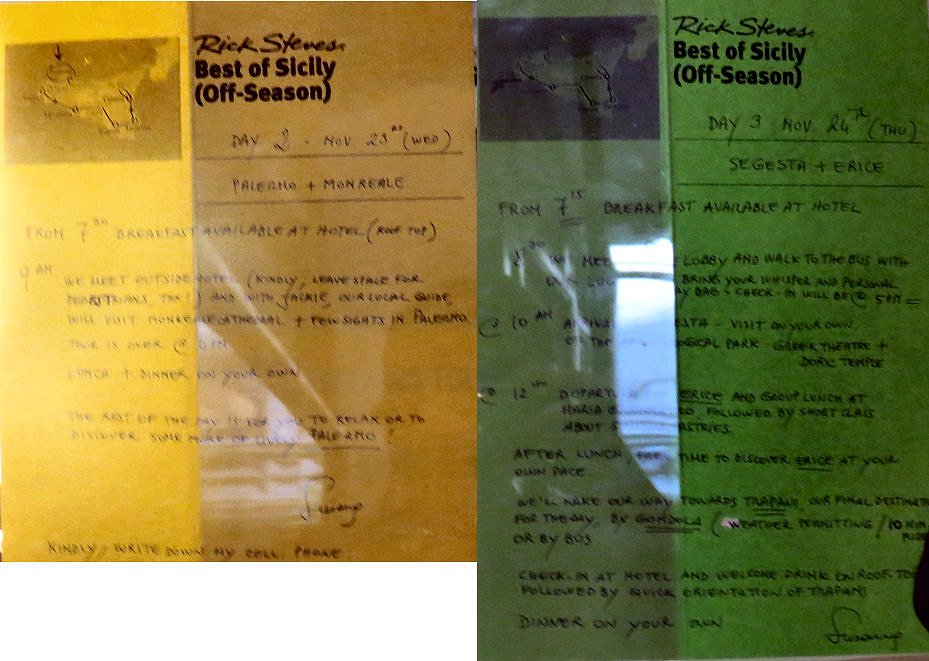 Rick Steves
Best of Sicily
(Off-Season)
DAY 2 - NOV 23RD (WED)
PALERMO + MONREALE
FROM 7 30 BREAKFAST AVAILABLE AT HOTEL (ROOF TOP)
9 AM WE MEET OUTSIDE HOTEL (KINDLY, LEAVE SPACE FOR
PEDESTRIANS, TKS!) AND WITH JACKIE, OUR LOCAL GUIDE,
WILL VISIT MONREALE CATHEDRAL + FEW SIGHTS IN PALERMO
TOUR IS OVER @ PM
LUNCH + DINNER ON YOUR OWN
THE REST OF THE DAY IS FOR YOU TO RELAX OR TO
DISCOVER SOME MORE OF PALERMO!
KINDLY, WRITE DOWN MY CELL. PHONE:
Rick Steves
Best of Sicily
(Off-Season)
DAY 3 - NOV. 24TH (THU)
SEGESTA + ERICE
FROM 7 15 BREAKFAST AVAILABLE AT HOTEL
8 30 WE MEET LOBBY AND WALK TO THE BUS WITH
OUR BRING YOUR WHISPER AND PERSONAL
DAY BAG - CHECK-IN WILL BE @ 5PM
@ 10 AM ESTA - VISIT ON YOUR OWN
OF THE OGICAL PARK - GREEK THEATRE +
DORIC TEMPLE
@ 12 ERICE AND GROUP LUNCH AT
MARIA FOLLOWED BY SHORT CLASS
ABOUT STRIES.
AFTER LUNCH, FREE TIME TO DISCOVER ERICE AT YOUR
OWN PACE
WE'LL MAKE OUR WAY TOWARDS TRAPANI, OUR FINAL DESTINAT
FOR THE DAY, BY GONDOLA (WEATHER PERMITTING / 10 MIN
RIDE
OR BY BUS
CHECK-IN AT HOTEL AND WELCOME DRINK ON ROOF-TO
FOLLOWED BY QUICK ORIENTATION OF TRAPANI
DINNER ON YOUR OWN